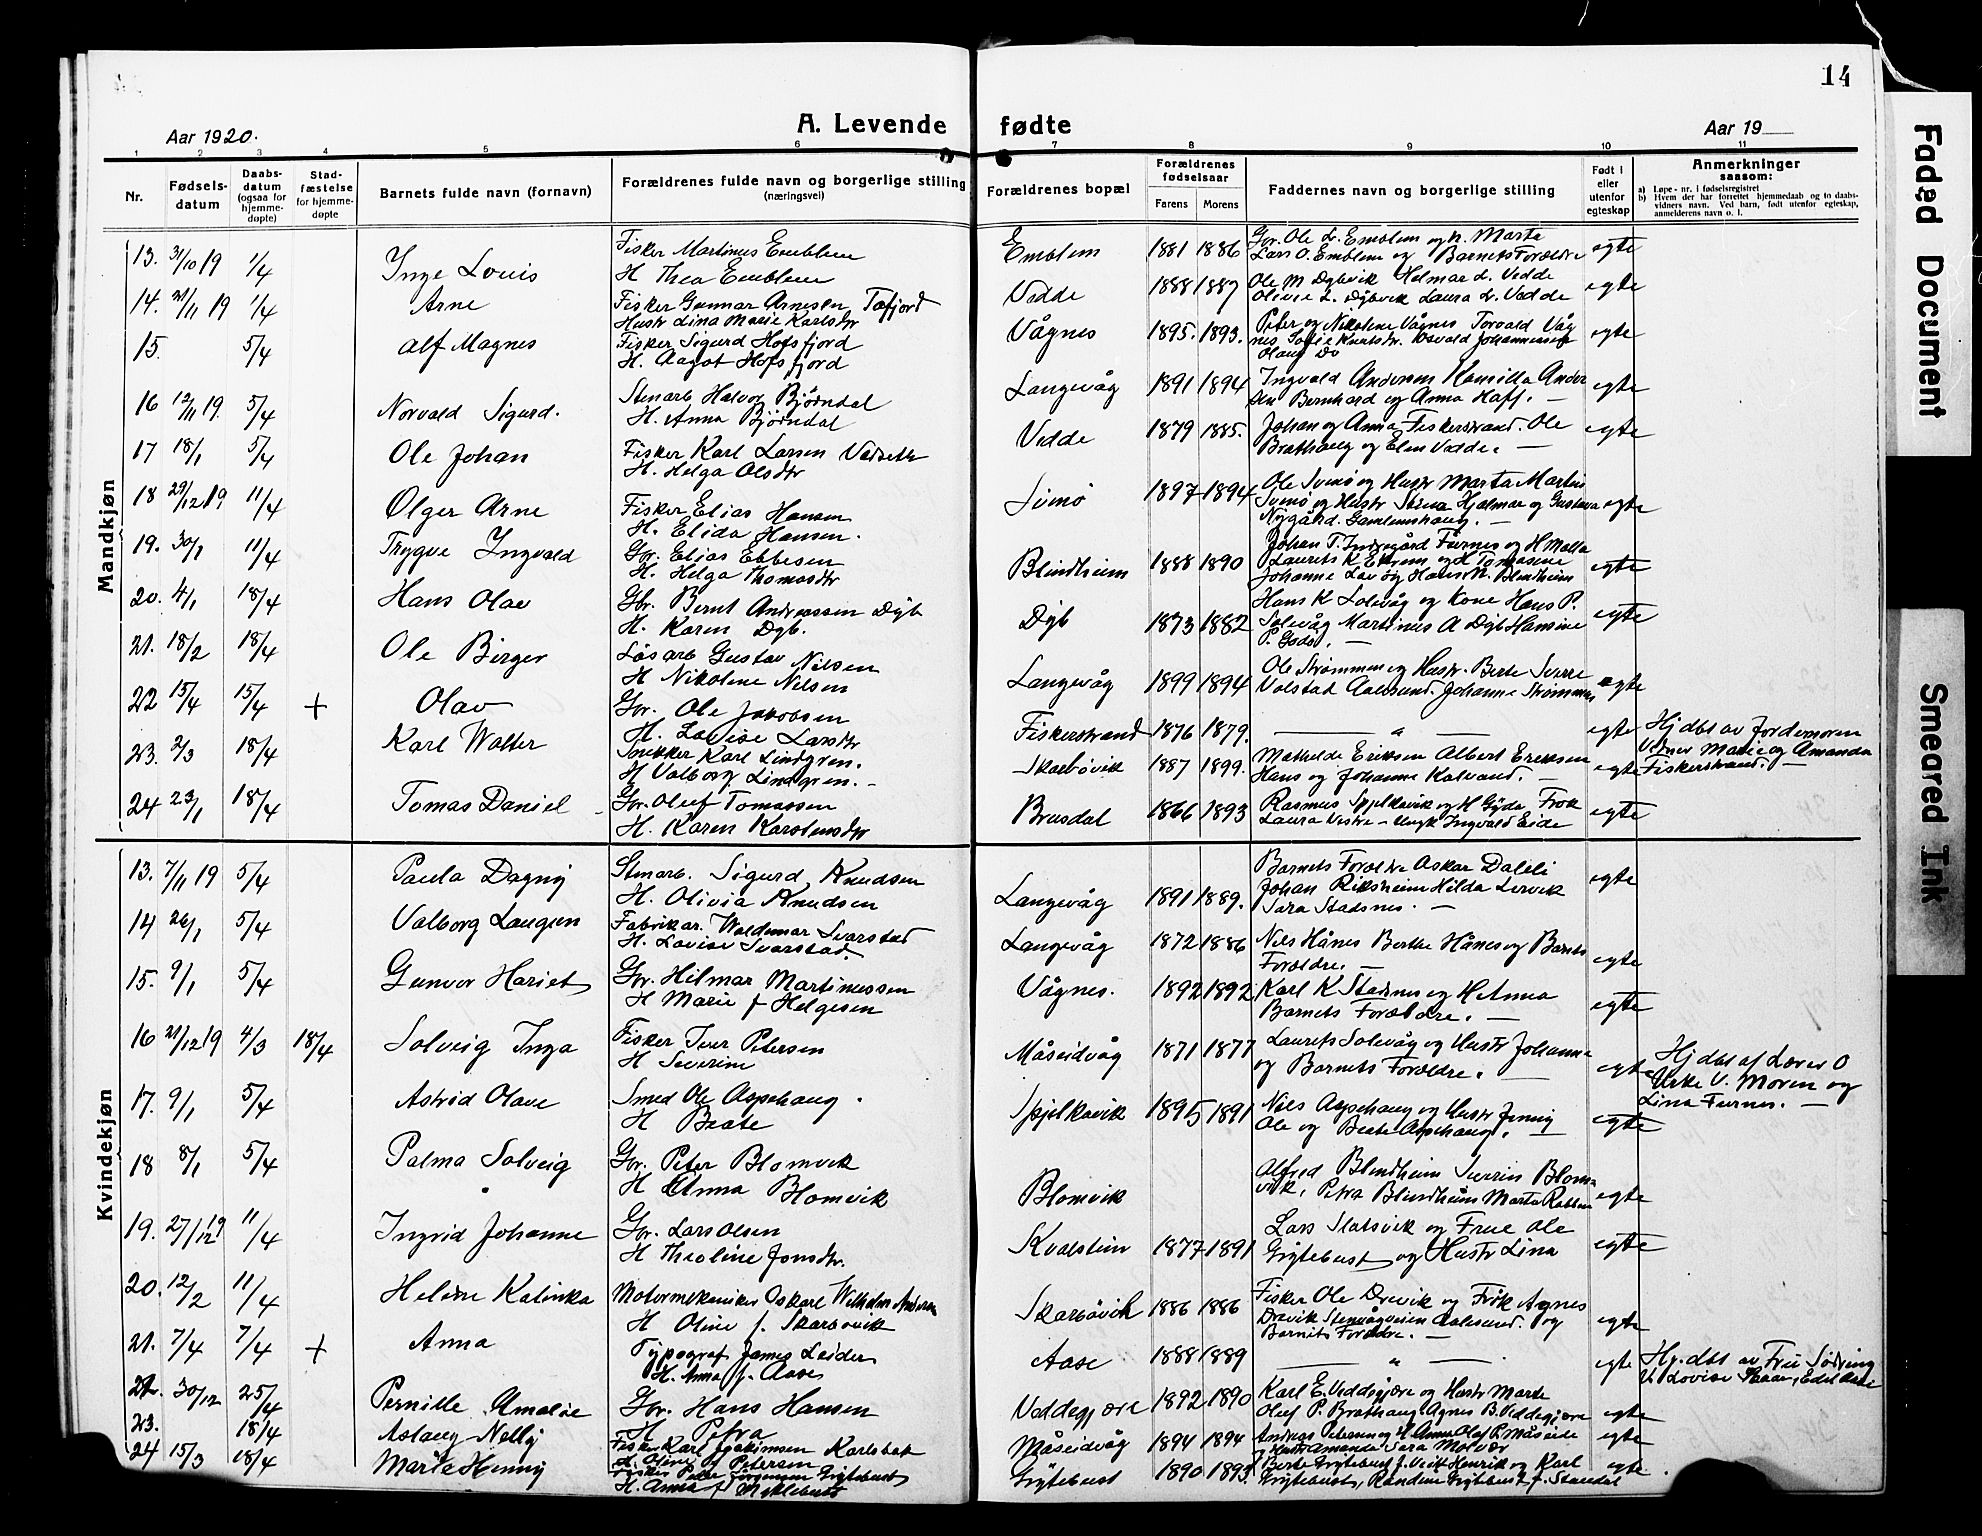 14
Aar 1920.
A. Levende fødte
Aar 19
1 2 3 4 5 6 7 8 9 10 11
Nr.
Fødsels-
datum
Daabs-
datum
(ogsaa for
hjemme-
døpte)
Stad-
fæstelse
for hjemme-
døpte
Barnets fulde navn (fornavn)
Forældrenes fulde navn og borgerlige stilling
(næringsvei)
Forældrenes bopæl
Forældrenes
fødselsaar
Farens Morens
Faddernes navn og borgerlige stilling
Født i
eller
utenfor
egteskap
Anmerkninger
saasom:
a) Løpe-nr. i fødselsregistret
b) Hvem der har forrettet hjemmedaab og to daabs-
vidners navn. Ved barn, født utenfor egteskap,
anmelderens navn o. l.
Mandkjøn
13. 31/10 19 1/4 Inge Louis Fisker Martinus Emblem
H Thea Emblem
Emblem 1881 1886 Gbr. Ole L. Emblem og h. Marta
Lars O. Emblem og Barnets Forældre egte
14. 21/11 19 1/4 Arne Fisker Gunnar Arnesen Tafjord
Hustr Lina Marie Karlsdtr
Vedde 1888 1887 Ole M Dybvik Helmar d. Vedde
Olivie L. Dybvik Laura L. Vedde egte
15. 5/4 Alf Magnes Fisker Sigurd Hofsfjord
H. Aagot Hofsfjord
Vågnes 1895. 1893. Peter og Nikoline Vågnes Torvald Våg
nes Osvald Johannessen
Olaug Do egte
16 12/11 19. 5/4 Norvald Sigurd. Stmarb Halvor Bjørndal
H. Anna Bjørndal
Langevåg 1891 1894 Ingvald Andersen Kamilla Ander
sen Bernhard og Anna Haff. — egte
17 18/1 5/4 Ole Johan Fisker Karl Larsen
H. Helga Olsdtr
Vedde 1879 1885. Johan og Anna Fiskerstrand. Ole
Brathaug og Elen Vedde. — egte
18 29/12 19 11/4 Olger Arne Fisker Elias Hansen
H. Elida Hansen.
Svinø 1897 1894 Ole Svinø og Hustr Marta Martin
Svinø og Hustr Stina Hjalmar og Gustava
Nygård. Gamlemshaug. — egte
19. 30/1 11/4 Trygve Ingvald Gbr. Elias Ebbesen
H. Helga Thomasdtr
Blindheim 1888 1890 Johan T. Indregård Furnes og H Malla
Laurits K Ekrem og H Tomasine
Johanne Hans N. Blindheim egte
20. 4/1 18/4 Hans Olav Gbr. Bernt Andreassen Dyb
H. Karen Dyb.
Dyb 1873 1882 Hans K Solevåg og Kone Hans P.
Solevåg Martinus A Dyb Hansine
P. Godø. — egte
21. 18/2 18/4 Ole Birger Løsarb Gustav Nilsen
H Nikoline Nilsen
Langevåg 1899 1894 Ole Strømmen og Hustr. Berte Sverre
Volstad Aalesund. Johanne Strømmen egte
22 15/4 15/4 + Olav Gbr. Ole Jakobsen
H. Lovise Larsdtr
Fiskerstrand 1876 1879. — " — egte Hjdbt av Jordemoren
Vidner Marie og Amanda
Fiskerstrand. —
23. 2/3 18/4 Karl Walter Snikker Karl Lindgren.
H Valborg Lindgren. —
Skarbøvik 1887 1899. Mathilde Eriksen Albert Eriksen
Hans og Johanne Kalvand. — egte
24 23/1 18/4 Tomas Daniel Gbr. Oluf Tomassen
H. Karen Karstensdtr
Brusdal 1866 1893 Rasmus Spjelkavik og H Gyda Frøk
Laura Vestre – Ungk Ingvald Eide egte
Kvindekjøn
13. 7/11 19 5/4 Paula Dagny Stmarb. Sigurd Knudsen
H. Olivia Knudsen
Langevåg 1891 1889. Barnets Forældre Oskar Daleli
Johan Riksheim Hilda Lervik
Sara Stadsnes. — egte
14 26/1 5/4 Valborg Laugun Fabrikar. Waldemar Svarstad
H. Lovise Svarstad.
Langevåg 1872 1886 Nils Hånes Berthe Hånes og Barnets
Forældre. — egte
15. 9/1 5/4 Gunvor Hariet Gbr. Hilmar Martinussen
H Marie f Helgesen
Vågnes. 1892 1892 Karl K Stadsnes og H Anna
Barnets Forældre. — egte
16 21/12 19 4/3 18/4 Solveig Inga Fisker Iver Petersen
H Severine
Måseidvåg 1871 1877 Laurits Solevåg og Hustr Johanne
og Barnets Forældre. — egte Hjdbt af Lærer O
Urke V. Moren og
Lina Furnes. —
17. 9/1 5/4 Astrid Olave Smed Ole Aspehaug.
H Beate
Spjelkavik 1895 1891 Nils Aspehaug og Hustr Jenny
Ole og Beate Aspehaug. — egte
18 8/1 5/4 Palma Solveig Gbr. Peter Blomvik
H Anna Blomvik
Blomvik Alfred Blindheim Severin Blom-
vik, Petra Blindheim Marta Rabben egte
19. 27/12 19 11/4 Ingrid Johanne Gbr. Lars Olsen
H Theoline Jonsdtr.
Kvalstein 1877 1891 Lars Slatsvik og Frue Ole
Gigtebust og Hustr Lina egte
20. 12/2 11/4 Helene Katinka Motormekaniker Oskarl Wilhelm Andersen
H Oline f. Skarbøvik
Skarbøvik 1886 1886 Fisker Ole Drevik og Frøk Agnes
Drevik Stenvågveien Aalesund. og
Barnets Forældre. — egte
21. 7/4 7/4 + Anna Typograf James Leider
H. Anna f. Aase
Aase 1888 1889 — " — egte Hj.dbt av Fru Sødring
V. Lovise Edel Aase
22. 30/12 25/4 Pernille Amalie Gbr. Hans Hansen
H Petra
Veddegjære 1892 1890 Karl E. Veddegjære og Hustr Marte
Oluf P. Brathaug Agnes B. Veddegjære egte
23. 18/4 Aslaug Nelly Fisker Karl Joakimsen Karlsbak
H. Oline f Petersen
Måseidvåg 1894 1894 Andreas Petersen og H Anna Olaf P. Måseide
og Hustr Amanda Sara Molvær egte
24 15/3 18/4 Marie Henny Fisker Peder Jørgensen Gigtebust
H. Anna f Myklebust
Gigtebust 1890 1893. Berte Gigtebust f. Veit Henrik og Karl
Gigtebust, Randine Gigtebust f. Standal egte
Faded Document
Smeared Ink